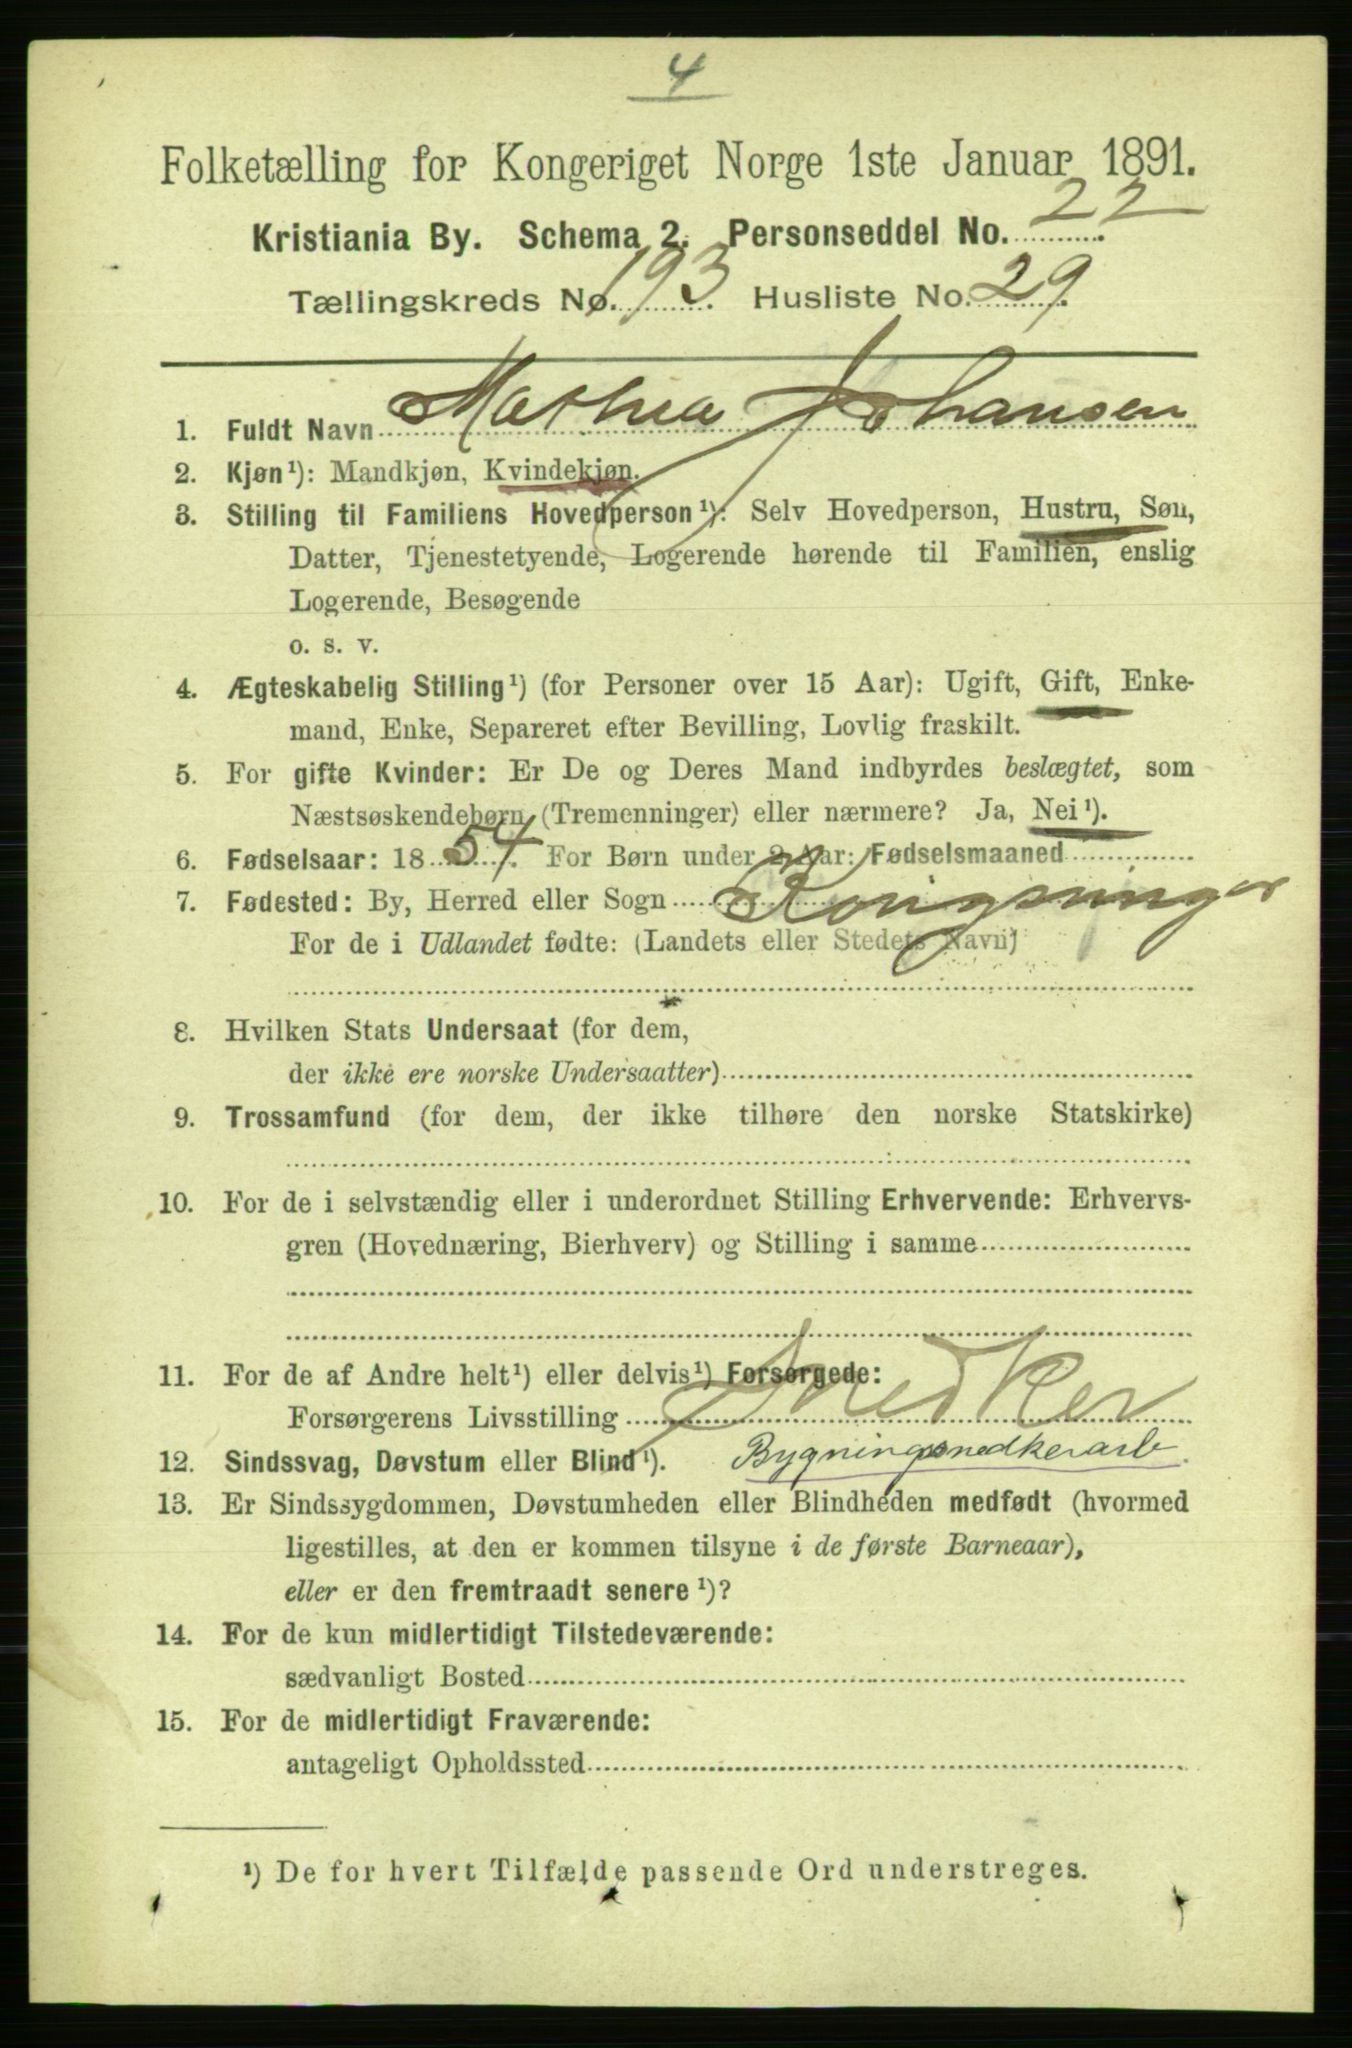 4
Folketælling for Kongeriget Norge 1ste Januar 1891.
Kristiania By. Schema 2. Personseddel No. 22
Tællingskreds No. 193. Husliste No. 29.
1. Fuldt Navn Mathea Johansen
2. Kjøn¹): Mandkjøn, Kvindekjøn.
3. Stilling til Familiens Hovedperson¹): Selv Hovedperson, Hustru, Søn,
Datter, Tjenestetyende, Logerende hørende til Familien, enslig
Logerende, Besøgende
o. s. v.
4. Ægteskabelig Stilling¹) (for Personer over 15 Aar): Ugift, Gift, Enke-
mand, Enke, Separeret efter Bevilling, Lovlig fraskilt.
5. For gifte Kvinder: Er De og Deres Mand indbyrdes beslægtet, som
Næstsøskendebørn (Tremenninger) eller nærmere? Ja, Nei¹).
6. Fødselsaar: 1854. For Børn under 2 Aar: Fødselsmaaned
7. Fødested: By, Herred eller Sogn Kongsvinger
For de i Udlandet fødte: (Landets eller Stedets Navn)
8. Hvilken Stats Undersaat (for dem,
der ikke ere norske Undersaatter)
9. Trossamfund (for dem, der ikke tilhøre den norske Statskirke)
10. For de i selvstændig eller i underordnet Stilling Erhvervende: Erhvervs-
gren (Hovednæring, Bierhverv) og Stilling i samme
11. For de af Andre helt¹) eller delvis¹) Forsørgede:
Forsørgerens Livsstilling Snedker
12. Sindssvag, Døvstum eller Blind¹). Bygningssnedkerarb.
13. Er Sindssygdommen, Døvstumheden eller Blindheden medfødt (hvormed
ligestilles, at den er kommen tilsyne i de første Barneaar),
eller er den fremtraadt senere¹)?
14. For de kun midlertidigt Tilstedeværende:
sædvanligt Bosted
15. For de midlertidigt Fraværende:
antageligt Opholdssted
¹) De for hvert Tilfælde passende Ord understreges.